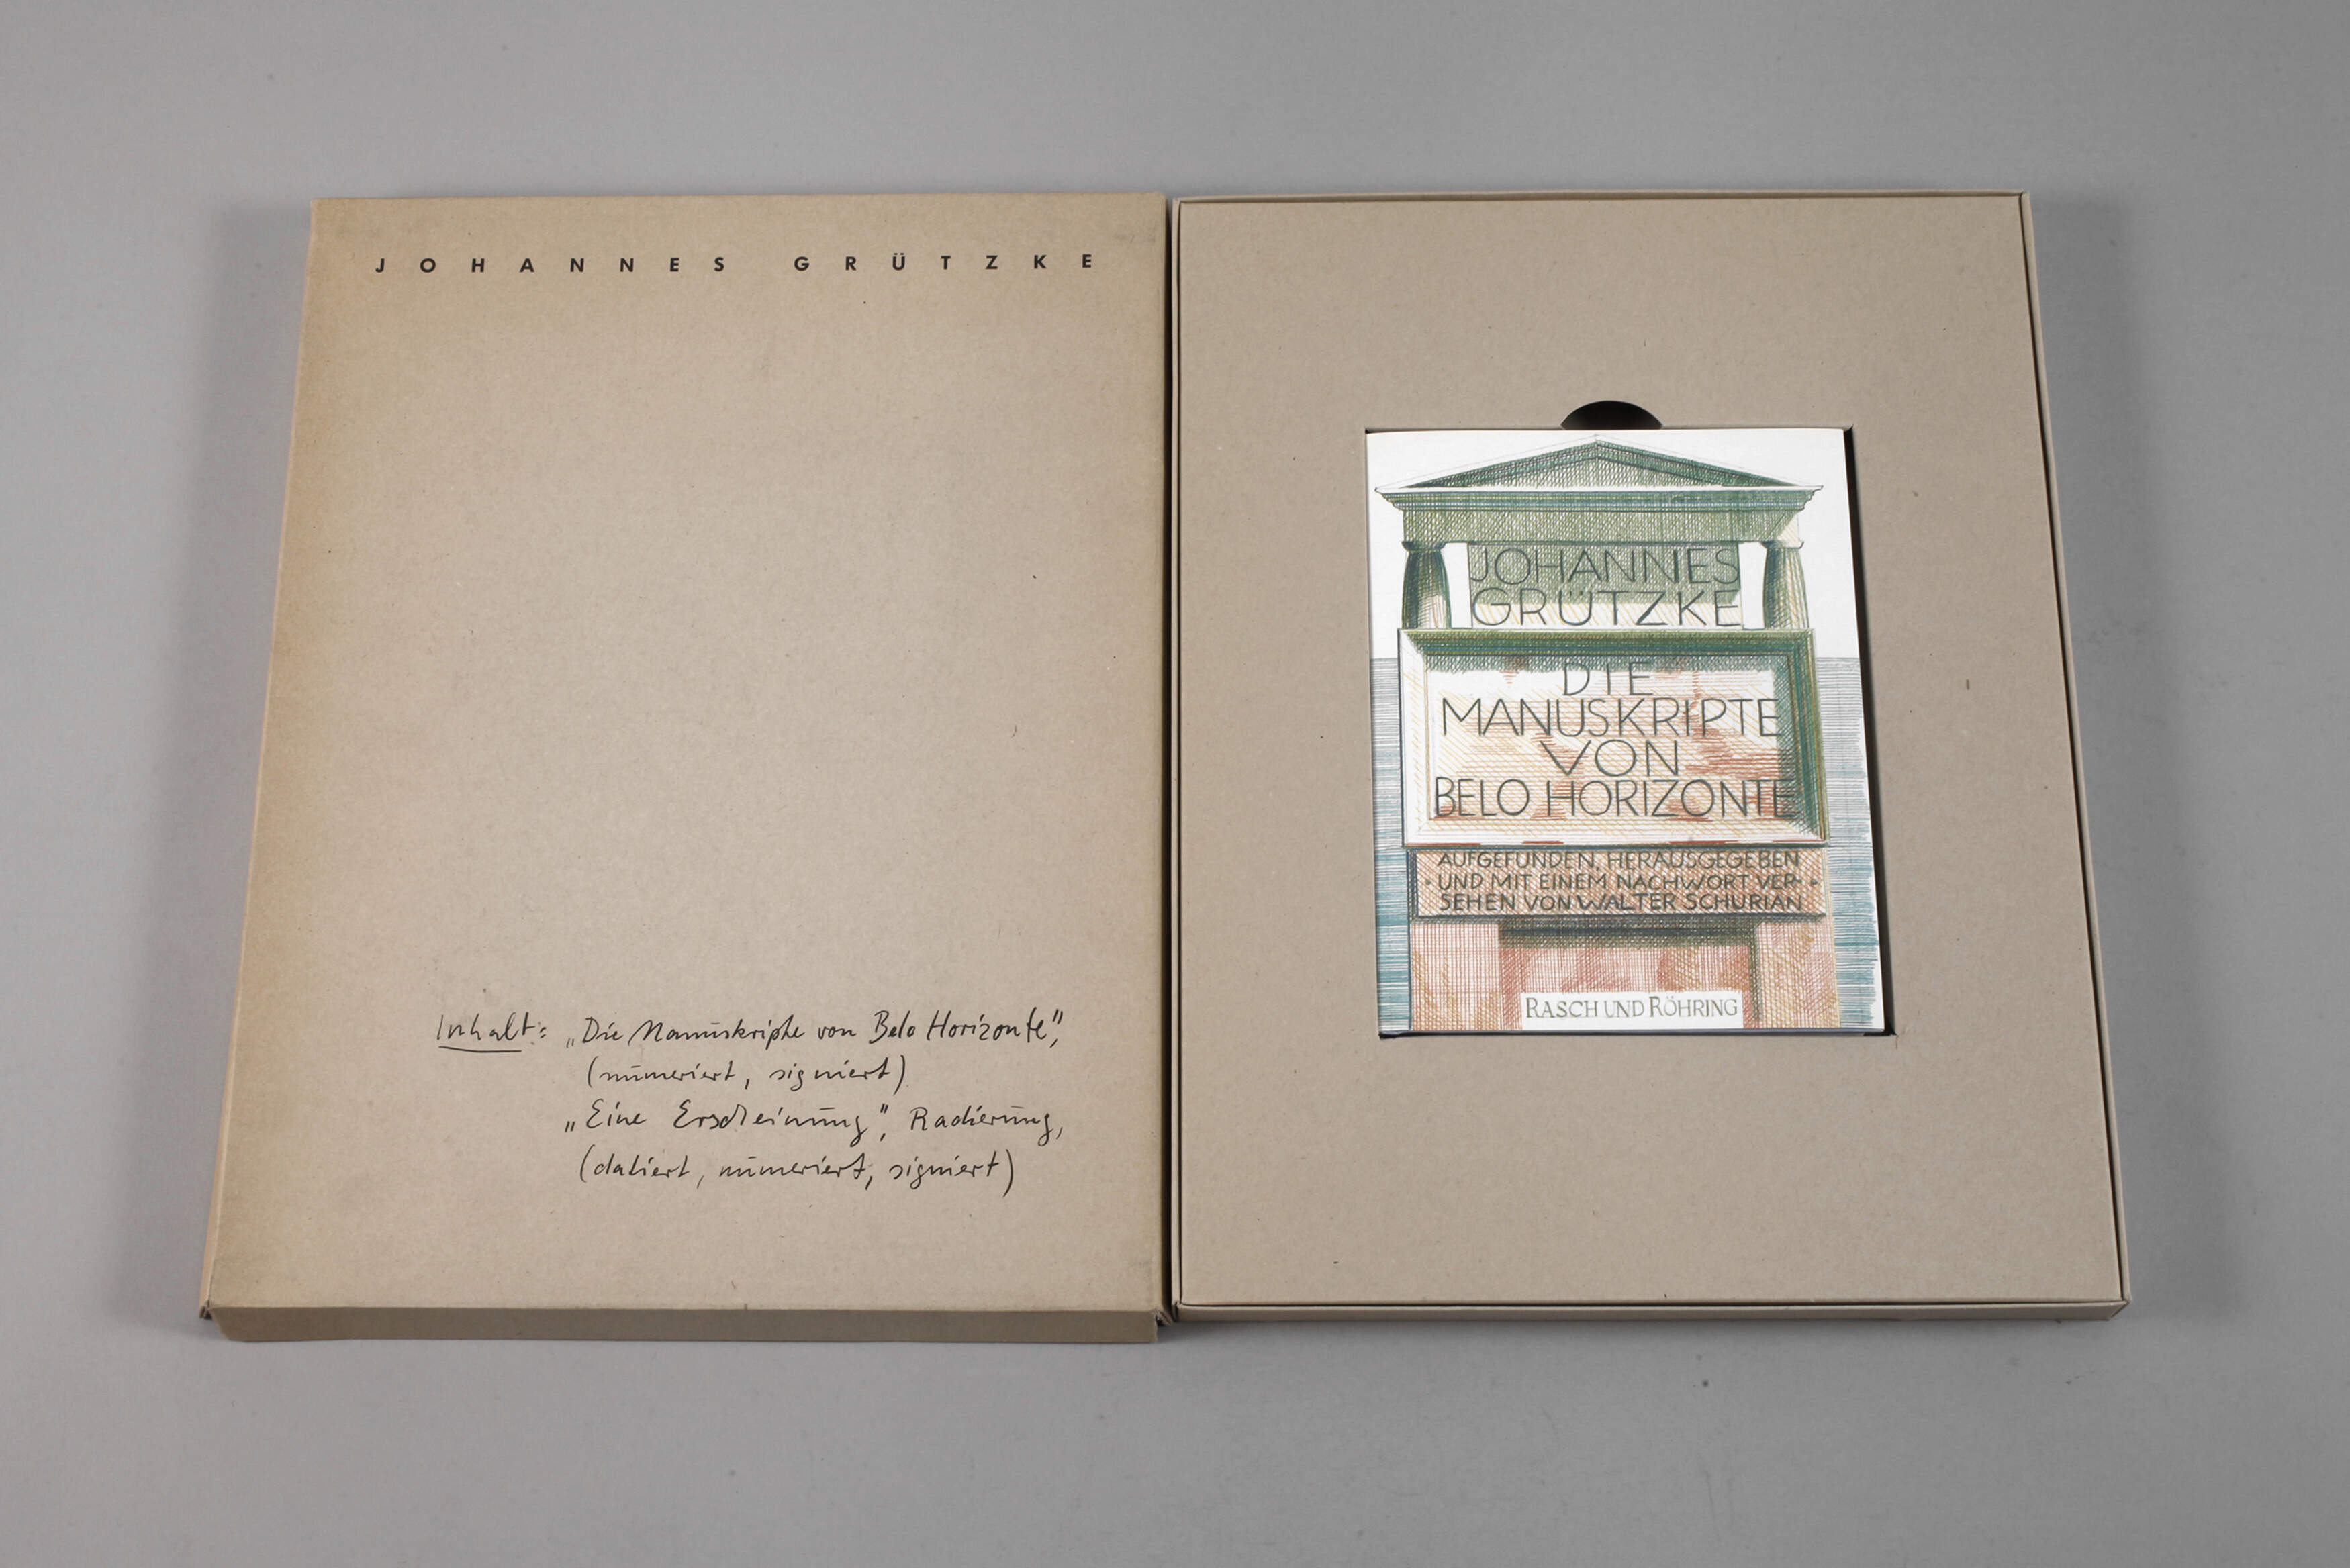 JOHANNES GRÜTZKE
Inhalt: „Die Manuskripte von Belo Horizonte",
(numeriert, signiert)
„Eine Erscheinung", Radierung,
(datiert, numeriert, signiert)
JOHANNES
GRÜTZKE
DIE
MANUSKRIPTE
VON
BELO HORIZONTE
AUFGEFUNDEN, HERAUSGEGEBEN
UND MIT EINEM NACHWORT VER-
SEHEN VON WALTER SCHURIAN
RASCH UND RÖHRING